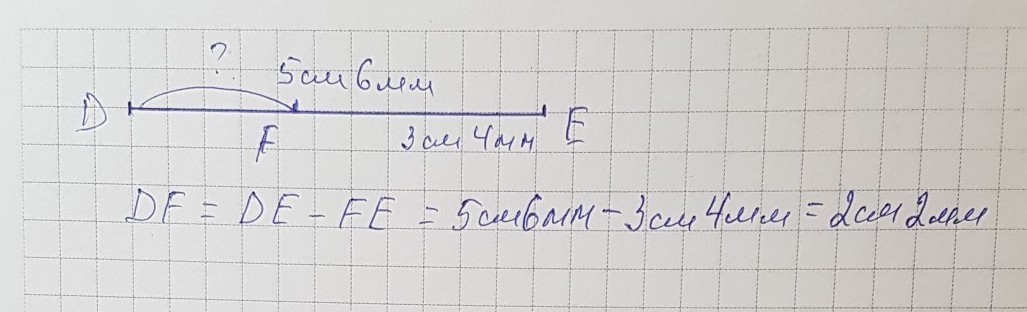 ?
5см 6мм
D
E
F
3см 4мм
DF = DE - FE = 5см6мм - 3см4мм = 2см2мм